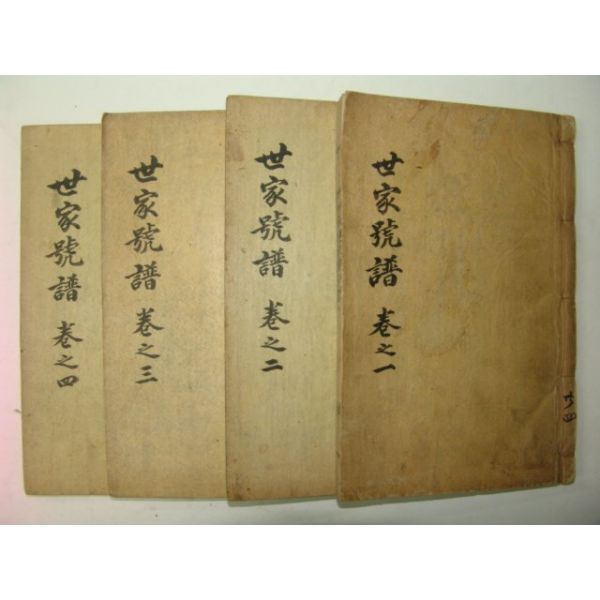 世家號譜 卷之一
世家號譜 卷之二
世家號譜 卷之三
世家號譜 卷之四
共四